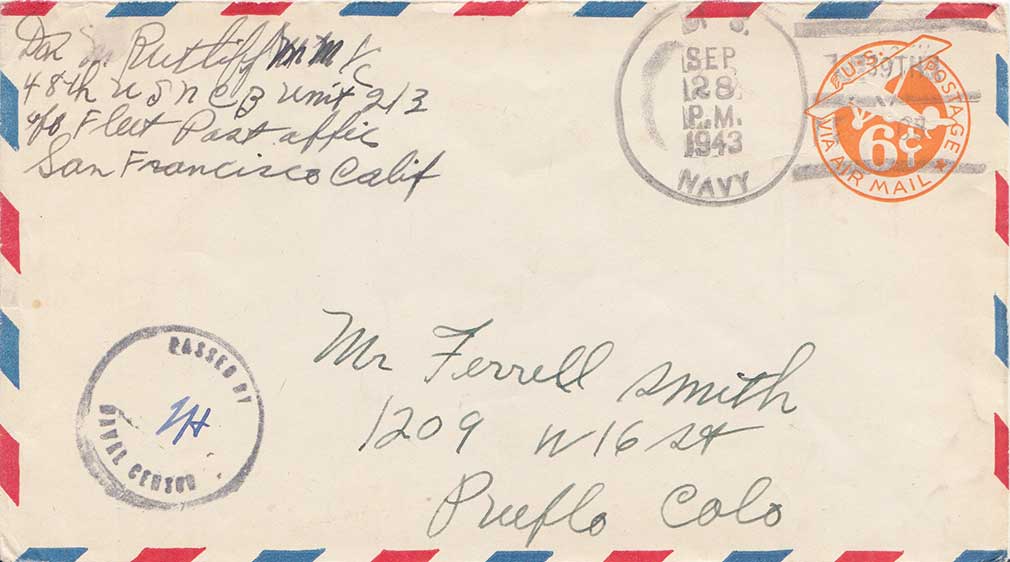 Don m Rutliff mm 1/C
48th U S N C B Unit 213
c/o Fleet Post affic
San Francisco Calif
U. S.
SEP
28
P.M.
1943
NAVY
39TH
U.S. POSTAGE
6¢
VIA AIR MAIL
PASSED BY
NAVAL CENSOR
Mr Ferrell Smith
1209 W 16 St
Pueflo Colo